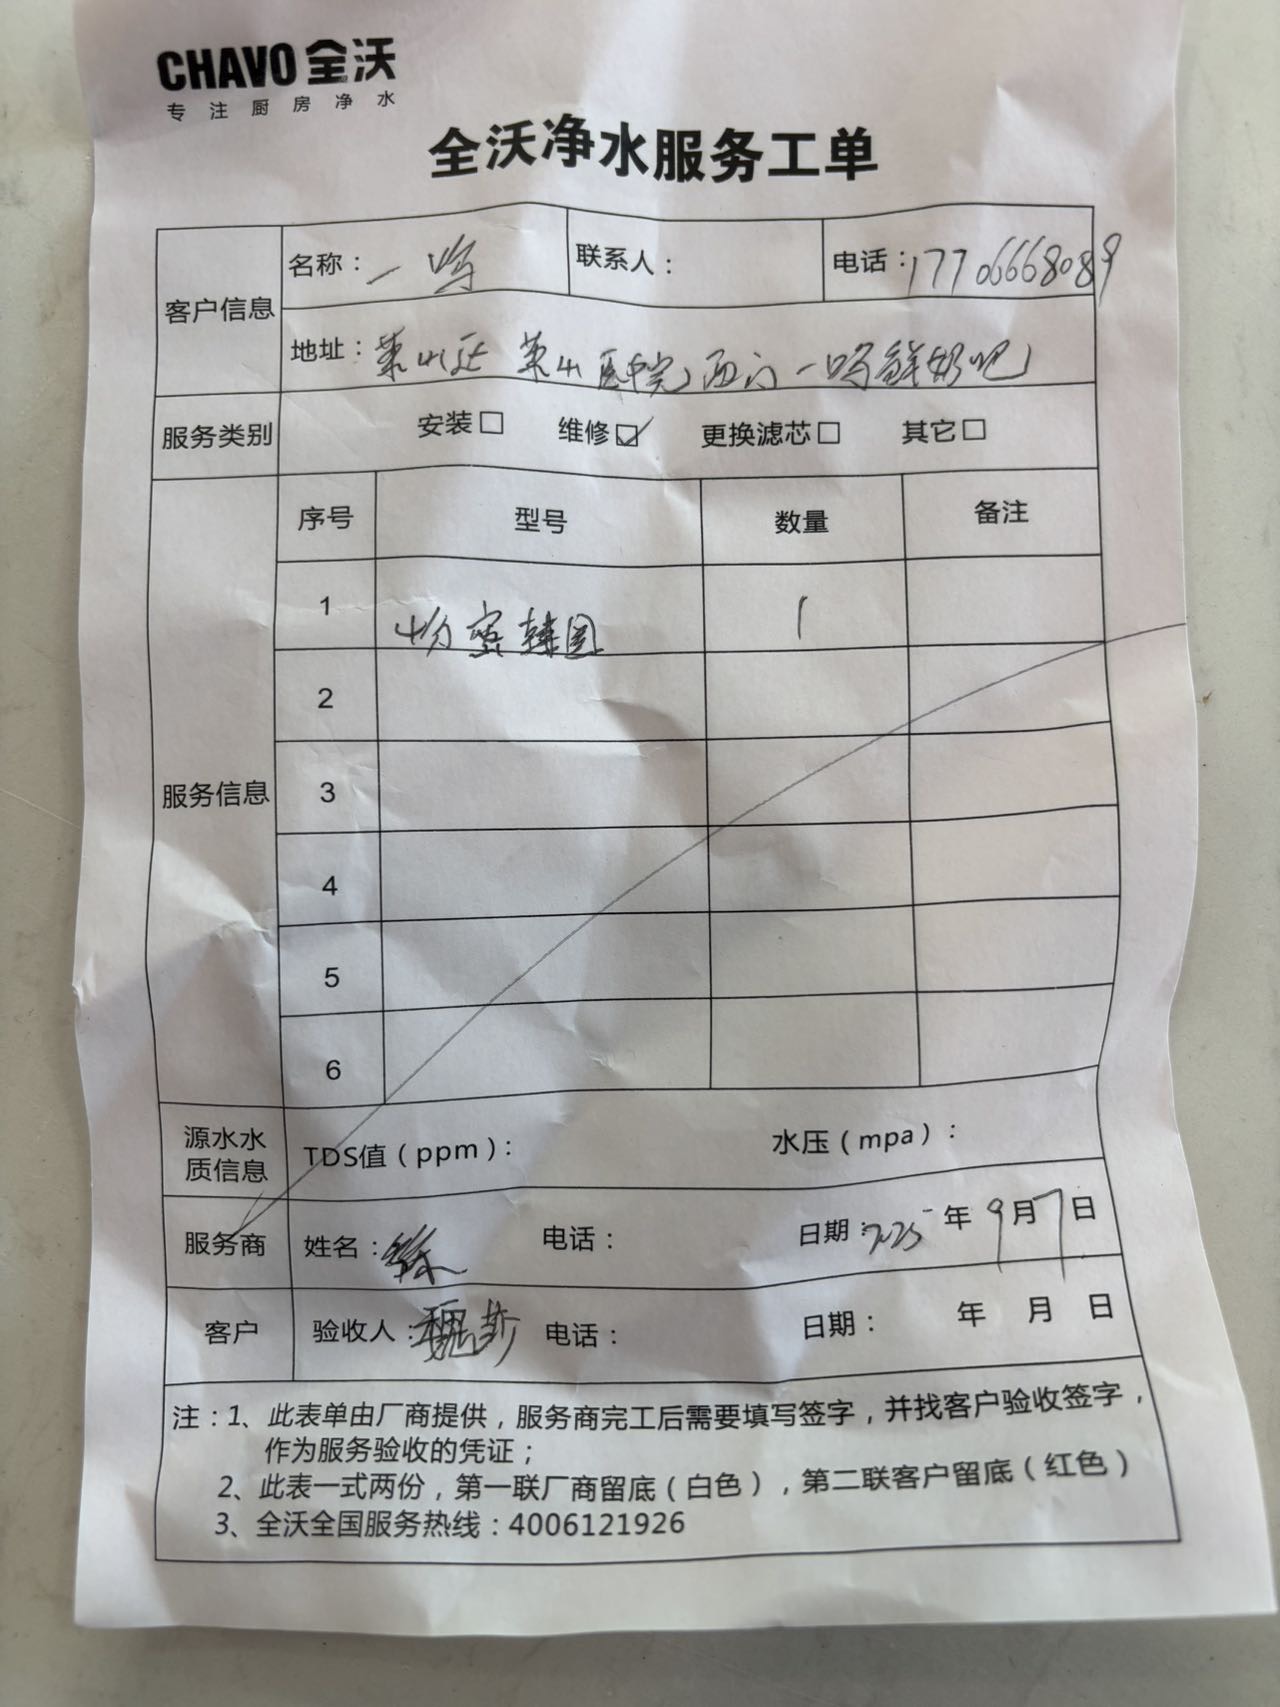 CHAVO 全沃
专注厨房净水
全沃净水服务工单
客户信息
名称：一鸣
联系人：
电话：17706668089
地址：莱山区 莱山医院西门一鸣鲜奶吧
服务类别
安装□ 维修☑ 更换滤芯□ 其它□
服务信息
序号 型号 数量 备注
1 1
2
3
4
5
6
源水水质信息
TDS值（ppm）：
水压（mpa）：
服务商
姓名：
电话：
日期：2025年9月7日
客户
验收人：魏
电话：
日期： 年 月 日
注：1、此表单由厂商提供，服务商完工后需要填写签字，并找客户验收签字，
作为服务验收的凭证；
2、此表一式两份，第一联厂商留底（白色），第二联客户留底（红色）
3、全沃全国服务热线：4006121926